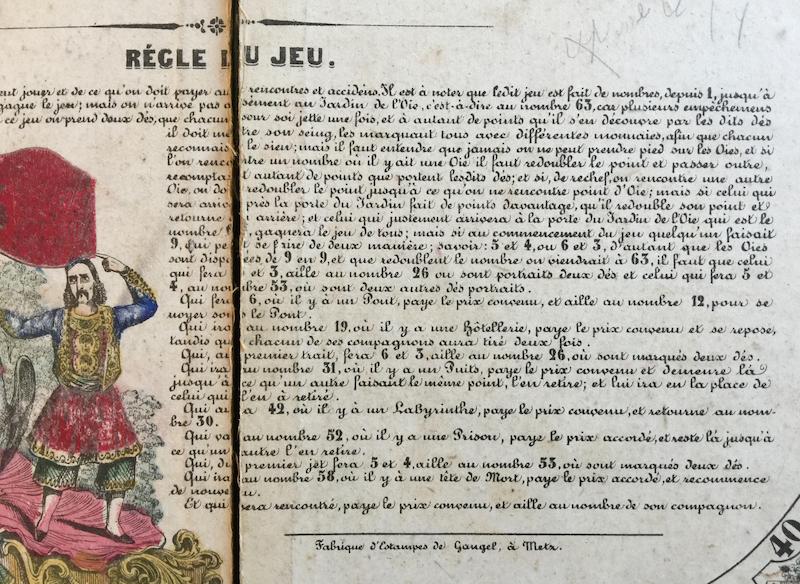 RÉGLE DU JEU.
eut jouer et de ce qu'on doit payer au rencontres et accidens. Il est à noter que ledit jeu est fait de nombres, depuis 1, jusqu'à
gagne le jeu; mais on n'arrive pas a sément au Jardin de l'Oie, c'est-à-dire au nombre 63, car plusieurs empêchemens
ce jeu on prend deux dés, que chacun pour soi jette une fois, et à autant de points qu'il s'en découvre par les dits dés
il doit me tre son seing, les marquant tous avec différentes monnaies, afin que chacun
reconnais le sien; mais il faut entendre que jamais on ne peut prendre pied sur les Oies, et si
l'on renco tre un nombre où il y ait une Oie il faut redoubler le point et passer outre,
recompta t autant de points que portent lesdits dés; et si, de rechef, on rencontre une autre
Oie, on do redoubler le point jusqu'à ce qu'on ne rencontre point d'Oie; mais si celui qui
sera arriv près la porte du Jardin fait de points davantage, qu'il redouble son point et
retourne arrière; et celui qui justement arrivera à la porte du Jardin de l'Oie qui est le
nombre gagnera le jeu de tous; mais si au commencement du jeu quelqu'un faisait
9, qui pe t se f ire de deux manière; savoir: 5 et 4, ou 6 et 3, d'autant que les Oies
sont dispo ées, de 9 en 9, et que redoublent le nombre on viendrait à 63, il faut que celui
qui fera et 3, aille au nombre 26 ou sont portraits deux dés et celui qui fera 5 et
4, au no bre 53, où sont deux autres dés portraits.
Qui fer 6, où il y à un Pont, paye le prix convenu, et aille au nombre 12, pour se
noyer so s le Pont.
Qui ira au nombre 19, où il y a une Hôtellerie, paye le prix convenu et se repose,
tandis qu chacun de ses compagnons aura tiré deux fois.
Qui, au premier trait, fera 6 et 3, aille au nombre 26, où sont marqués deux dés.
Qui ira au nombre 31, où il y a un Puits, paye le prix convenu et demeure là
jusqu'à ce qu'un autre faisant le même point, l'en retire; et lui ira en la place de
celui qui l'en à retiré.
Qui au a 42, où il y à un Labyrinthe, paye le prix convenu, et retourne au nom-
bre 30.
Qui va au nombre 52, où il y a une Prison, paye le prix accordé, et reste là jusqu'à
ce qu'un autre l'en retire.
Qui, du premier jet fera 5 et 4, aille au nombre 53, où sont marqués deux dés.
Qui ira au nombre 58, où il y à une tête de Mort, paye le prix accordé, et recommence
de nouve u.
Et qui sera rencontré, paye le prix convenu, et aille au nombre de son compagnon.
Fabrique d'Estampes de Gangel, à Metz.
40